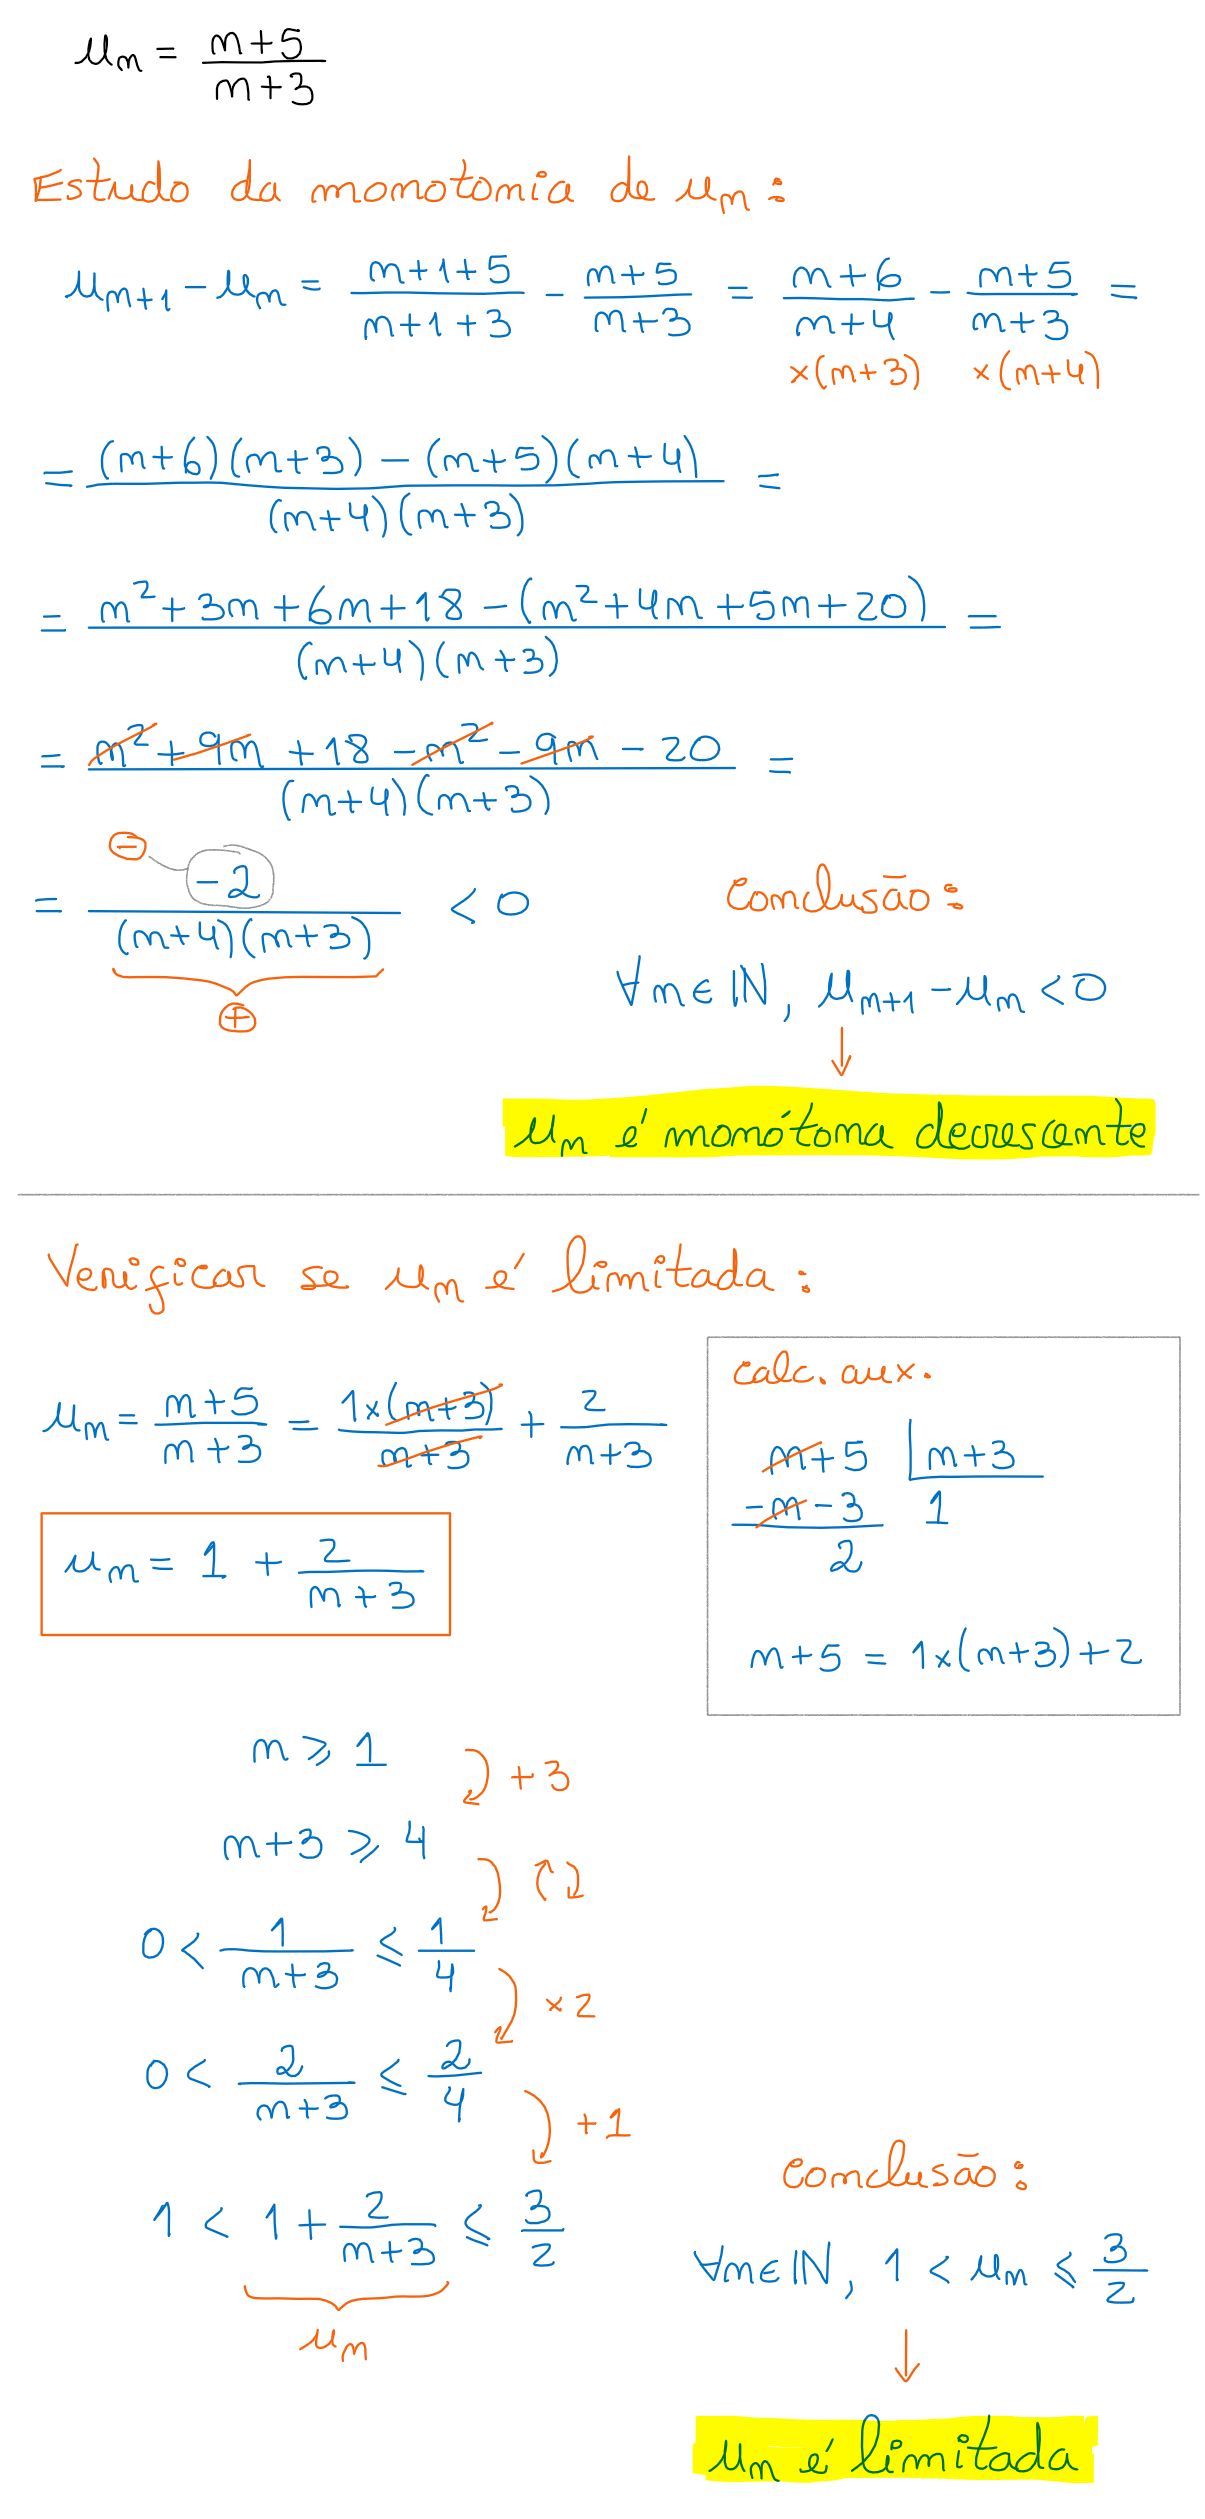 uₙ = (n+5)/(n+3)
Estudo da monotonia de uₙ:
uₙ₊₁ - uₙ = (n+1+5)/(n+1+3) - (n+5)/(n+3) = (n+6)/(n+4) - (n+5)/(n+3) =
×(n+3) ×(n+4)
= ((n+6)(n+3) - (n+5)(n+4))/((n+4)(n+3)) =
= (n²+3n+6n+18-(n²+4n+5n+20))/((n+4)(n+3)) =
= (n²+9n+18-n²-9n-20)/((n+4)(n+3)) =
⊖
= -2/((n+4)(n+3)) < 0
⊕
Conclusão:
∀n∈ℕ, uₙ₊₁ - uₙ < 0
↓
uₙ é monótona decrescente
Verificar se uₙ é limitada:
uₙ = (n+5)/(n+3) = (1×(n+3))/(n+3) + 2/(n+3)
uₙ = 1 + 2/(n+3)
calc. aux.
n+5 | n+3
-n-3 1
2
n+5 = 1×(n+3)+2
n ⩾ 1
+3
n+3 ⩾ 4
0 < 1/(n+3) ≤ 1/4
×2
0 < 2/(n+3) ≤ 2/4
+1
1 < 1 + 2/(n+3) ≤ 3/2
uₙ
Conclusão:
∀n∈ℕ, 1 < uₙ ≤ 3/2
↓
uₙ é limitada